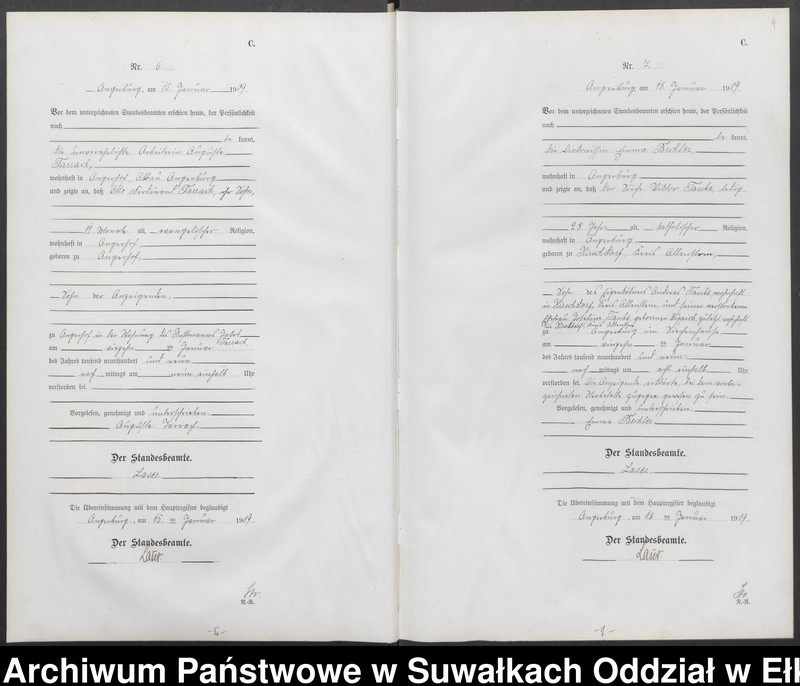 C.
Nr. 6.
Angerburg, am 15. Januar 1909.
Vor dem unterzeichneten Standesbeamten erschien heute, der Persönlichkeit
nach
be kannt,
die unverehelichte Arbeiterin Auguste
Tarrach,
wohnhaft in Angerhof, Abbau Angerburg
und zeigte an, daß Otto Ferdinand Tarrach, ihr Sohn,
11 Monate alt, evangelischer Religion,
wohnhaft in Angerhof,
geboren zu Angerhof,
Sohn der Anzeigenden,
zu Angerhof in der Wohnung des Jakob
Tarrach
am vierzehn ten Januar
des Jahres tausend neunhundert und neun
nach mittags um neun einhalb Uhr
verstorben sei.
Vorgelesen, genehmigt und unterschrieben
Auguste Tarrach.
Der Standesbeamte.
Laser
Die Übereinstimmung mit dem Hauptregister beglaubigt
Angerburg, am 15. ten Januar 1909.
Der Standesbeamte.
Laser
R.-R.
-6-
4
C.
Nr. 7.
Angerburg, am 15. Januar 1909.
Vor dem unterzeichneten Standesbeamten erschien heute, der Persönlichkeit
nach
be kannt,
die Diakonissin Emma Bechler
wohnhaft in Angerburg
und zeigte an, daß der Viktor Tautz, ledig,
28 Jahre alt, katholischer Religion,
wohnhaft in Angerburg,
geboren zu Kirschdorf, Kreis Allenstein,
Sohn des Eigenkätners Andreas Tautz, wohnhaft
in Kirschdorf, Kreis Allenstein und seiner verstorbenen
Ehefrau Tautz, geborenen zuletzt wohnhaft
in Kirschdorf, Kreis Allenstein
zu Angerburg im Siechenhause
am vierzehn ten Januar
des Jahres tausend neunhundert und neun
nach mittags um acht einhalb Uhr
verstorben sei. Die Anzeigende erklärte, bei dem vorbe-
zeichneten Sterbefalle zugegen gewesen zu sein.
Vorgelesen, genehmigt und unterschrieben
Emma Bechler.
Der Standesbeamte.
Laser
Die Übereinstimmung mit dem Hauptregister beglaubigt
Angerburg, am 15. ten Januar 1909.
Der Standesbeamte.
Laser
R.-R.
-7-
Archiwum Państwowe w Suwałkach Oddział w Ełk